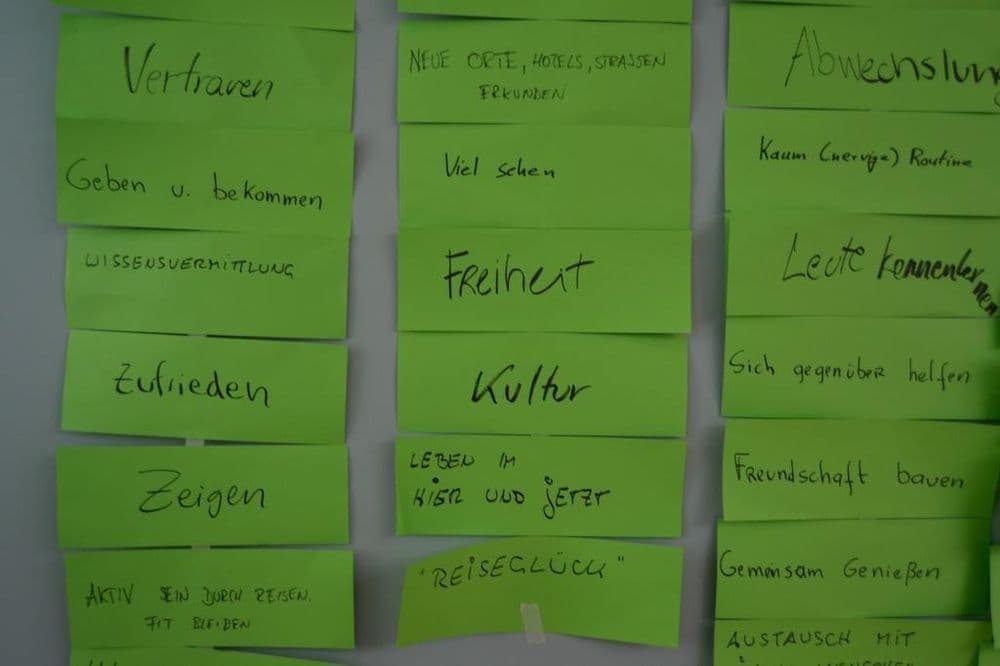 Vertrauen
Geben u. bekommen
WISSENSVERMITTLUNG
Zufrieden
Zeigen
AKTIV SEIN DURCH REISEN.
FIT BLEIBEN
NEUE ORTE, HOTELS, STRASSEN
ERKUNDEN
Viel sehen
Freiheit
Kultur
LEBEN IM
HIER UND JETZT
"REISEGLÜCK"
Abwechslung
Kaum (nervige) Routine
Leute kennenler
nen
Sich gegenüber helfen
Freundschaft bauen
Gemeinsam Genießen
AUSTAUSCH MIT